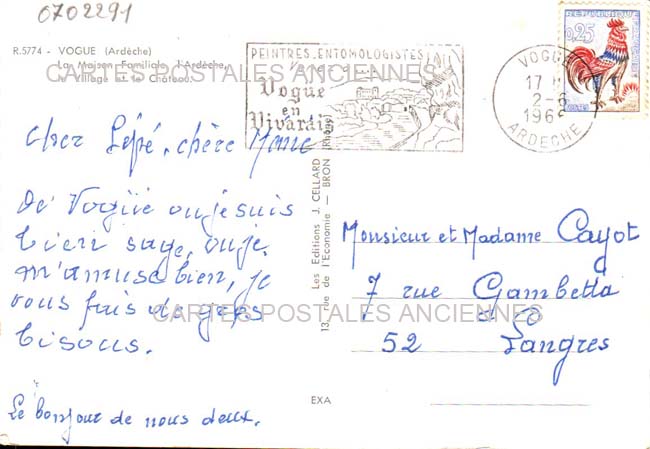 0702291
R.5774 - VOGUE (Ardèche)
La Maison Familiale, l'Ardèche,
le Village et le Château.
CARTES POSTALES ANCIENNES
PEINTRES_ENTOMOLOGISTES
Vogue
en
Vivarais
VOGUE
17 H
2-
196
ARDECHE
REPUBLIQUE FRANCAISE
0,25
POSTES
Cher Pépé, chère Mémé
De Vogüé ou je suis
bien sage, ou je
m'amuse bien, je
vous fais de gros
bisous.
Le bonjour de nous deux.
Les Editions J. CELLARD
13, rue de l'Economie — BRON (Rhône)
Monsieur et Madame Cayot
7 rue Gambetta
52 Langres
CARTES POSTALES ANCIENNES
EXA